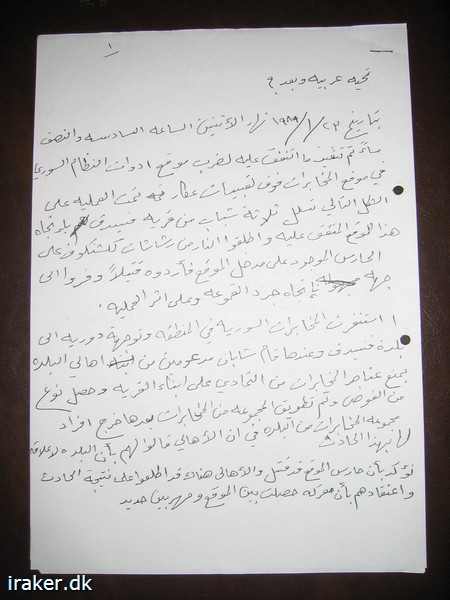 ١
تحيه عربيه وبعد ؟
بتاريخ ٢٣/ ١/ ١٩٨٩ نهار الاثنين الساعه السادسه والنصف
مساءً تم تنفيذ ما اتفق عليه لضرب موقع ادوات النظام السوري
في موقع المخابرات فوق عكار تمت العمليه على
الشكل التالي تسلل ثلاثة شباب من قرية فنيدق باتجاه
هذا الموقع المتفق عليه واطلقوا النار من رشاشات كلشنكوف على
الحارس الموجود على مدخل الموقع فأردوه قتيلاً وفروا الى
جهة باتجاه جرد القموعه وعلى اثر العمليه .
استنفرت المخابرات السوريه في المنطقه وتوجهة دوريه الى
بلدة فنيدق وعندها قام شابان مدعومين من اهالي البلده
بمنع عناصر المخابرات من التمادي على ابناء القريه وحصل نوع
من الفوضى وتم تطويق المجموعه من المخابرات بعدها خرج افراد
مجموعه المخابرات من البلده في ان الأهالي قالوا لهم بأن البلده لاعلاقة
لها بهذا الحادث
نؤكد بأن حارس الموقع قد قتل والأهالي هناك قد اطلعوا على نتيجة الحادث
واعتقادهم بأن معركه حصلت بين الموقع ومهربين حديد
iraker.dk